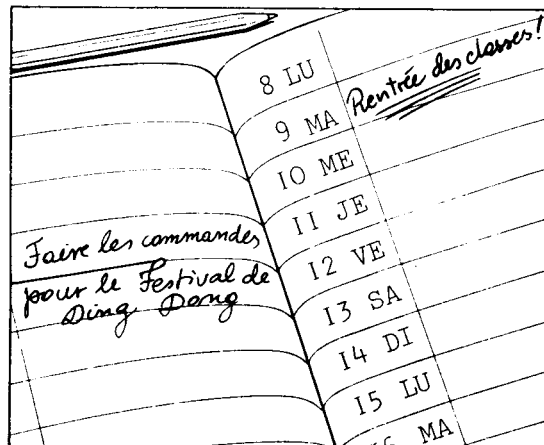 Faire les commandes
pour le Festival de
Ding Dong
8 LU
9 MA Rentrée des classes!
10 ME
11 JE
12 VE
13 SA
14 DI
15 LU
16 MA